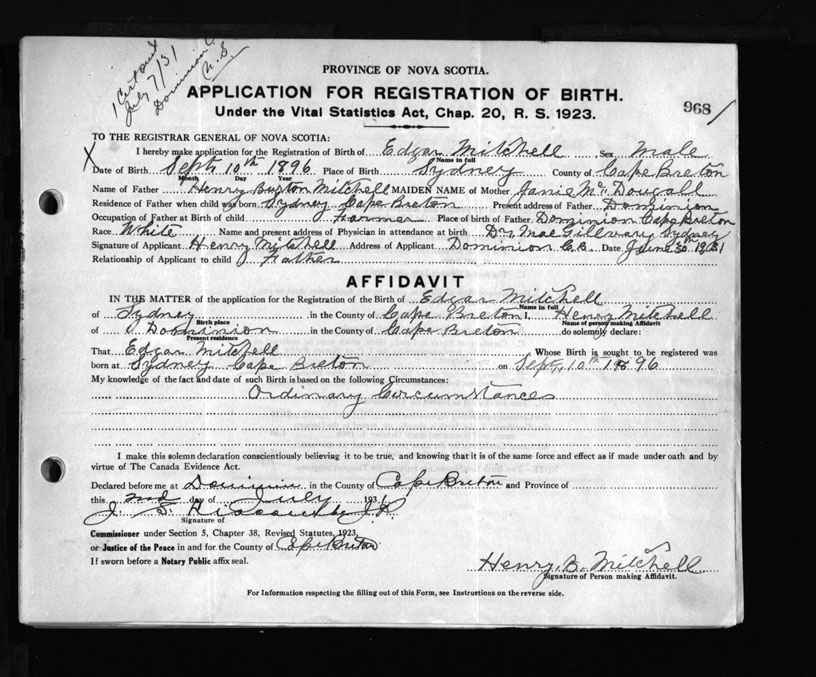 1 Cert out
July 7/31
Dominion
N.S
PROVINCE OF NOVA SCOTIA.
APPLICATION FOR REGISTRATION OF BIRTH.
Under the Vital Statistics Act, Chap. 20, R. S. 1923.
968
TO THE REGISTRAR GENERAL OF NOVA SCOTIA:
I hereby make application for the Registration of Birth of Edgar Mitchell Sex Male
Name in full
X Date of Birth Sept 10th 1896 Place of Birth Sydney County of Cape Breton
Month Day Year
Name of Father Henry Mitchell MAIDEN NAME of Mother Janie Mc Dougall
Residence of Father when child was born Sydney Cape Breton Present address of Father Dominion
Occupation of Father at Birth of child Farmer Place of birth of Father Dominion Cape Breton
Race White Name and present address of Physician in attendance at birth Dr. Mac Gillvary Sydney
Signature of Applicant Henry Mitchell Address of Applicant Dominion C.B. Date June 30th 1931
Relationship of Applicant to child Father
AFFIDAVIT
IN THE MATTER of the application for the Registration of the Birth of Edgar Mitchell
Name in full
of Sydney in the County of Cape Breton I, Henry Mitchell
Birth place Name of person making Affidavit
of Dominion in the County of Cape Breton do solemnly declare:
Present residence
That Edgar Mitchell Whose Birth is sought to be registered was
born at Sydney Cape Breton on Sept 10th 1896
My knowledge of the fact and date of such Birth is based on the following Circumstances:
Ordinary Circumstances
I make this solemn declaration conscientiously believing it to be true, and knowing that it is of the same force and effect as if made under oath and by
virtue of The Canada Evidence Act.
Declared before me at Dominion in the County of Cape Breton and Province of
this 2nd day of July 1931
J. S. J.P.
Signature of
Commissioner under Section 5, Chapter 38, Revised Statutes, 1923,
or Justice of the Peace in and for the County of Cape Breton
If sworn before a Notary Public affix seal.
Henry. B. Mitchell
Signature of Person making Affidavit.
For Information respecting the filling out of this Form, see Instructions on the reverse side.